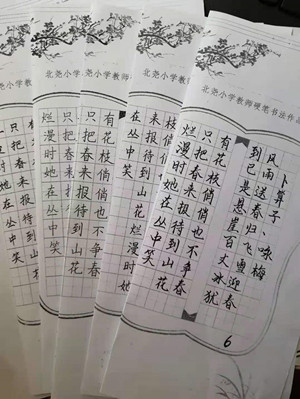 北尧小学教师硬笔书法作品
卜算子、咏梅
风雨送春归飞雪迎春
到已是悬崖百丈冰犹
有花枝俏俏也不争春
只把春来报待到山花
烂漫时她在丛中笑
6
北尧小学教师
枝俏俏也
来报待到山
在丛中笑
北尧小学教
有花枝俏俏也不争春
只把春来报待到山花
烂漫时她在丛中笑
北尧小学教
只把春来报待到山花
烂漫时她在丛中笑
北尧小学教
在丛中笑